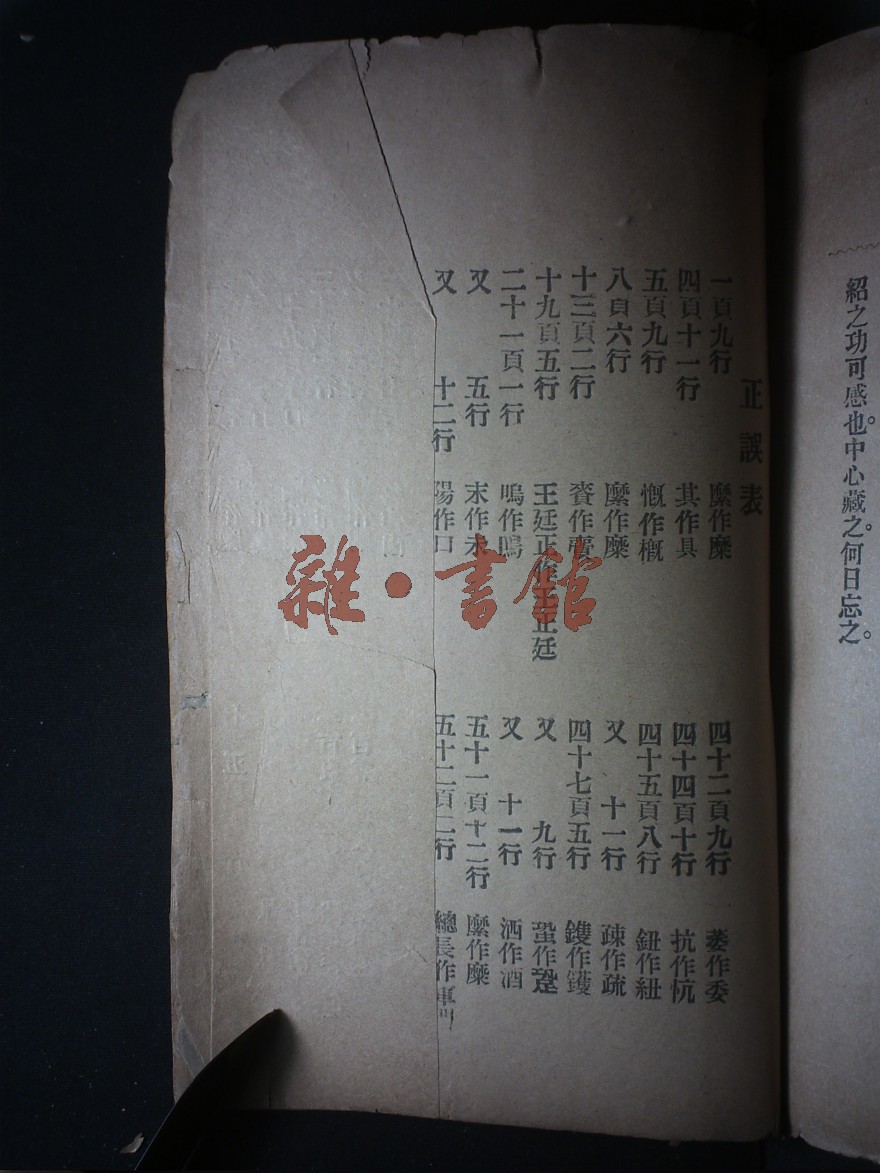 紹之功可感也。中心藏之。何日忘之。
正誤表
一頁九行 縻作糜
四頁十一行 其作具
五頁九行 慨作概
八頁六行 縻作糜
十三頁二行
十九頁五行 王廷正作王正廷
二十一頁一行 嗚作鳴
又 五行 末作未
又 十二行 陽作口
四十二頁九行 萎作委
四十四頁十行 抗作忼
四十五頁八行 鈕作紐
又 十一行 疎作疏
四十七頁五行 鏤作鑊
又 九行
又 十一行 洒作酒
五十一頁十二行 縻作糜
五十二頁二行 總長作軍門
雜·書館